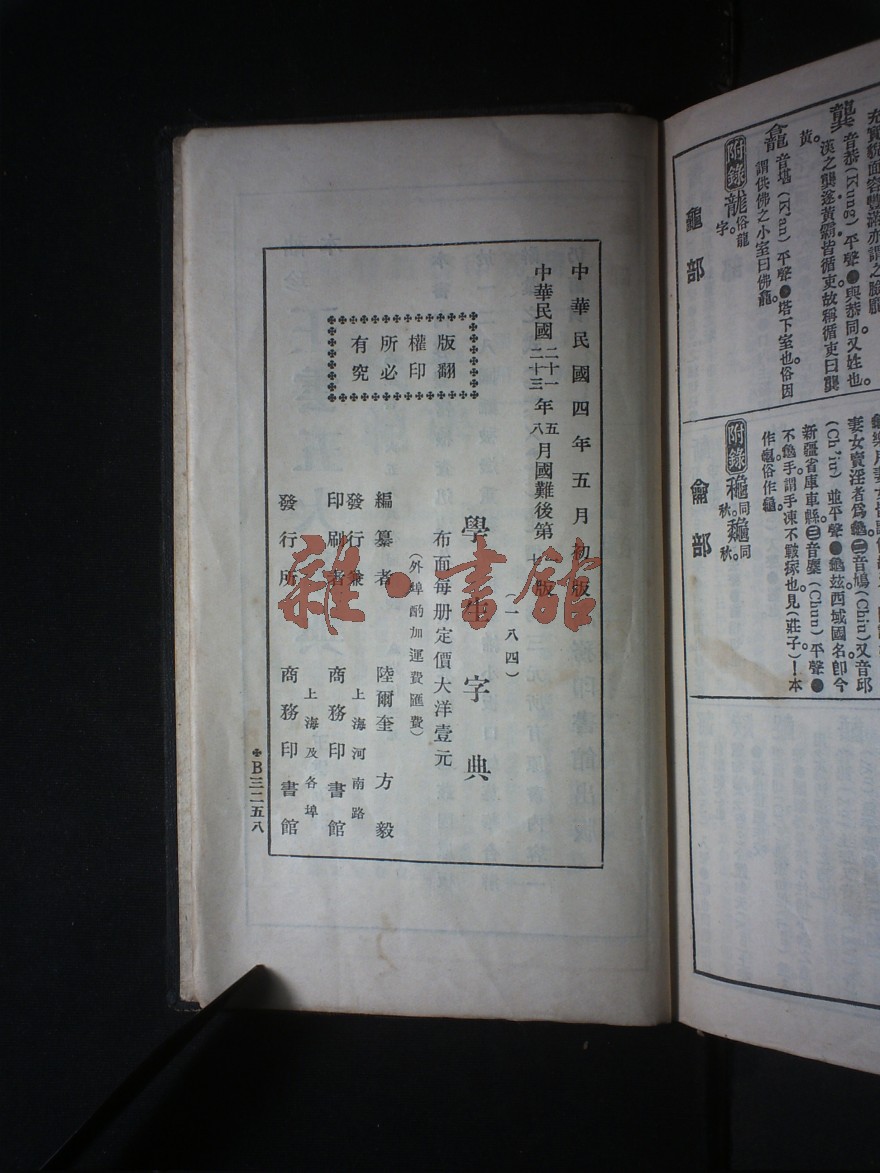 充實貌面容豐滿亦謂之臉龐
龔 音恭(Kung)平聲●與恭同又姓也。
漢之龔遂黃霸皆循吏故稱循吏曰龔
黃。
龕 音堪(K'an)平聲●塔下室也俗因
謂供佛之小室曰佛龕。
附錄 龍 俗龍字。
龜部
妻女賣淫者爲龜㊁音鳩(Chiu)又音邱
(Ch'iu)並平聲●龜玆西域國名卽今
新疆省庫車縣㊂音麕(Chun)平聲●
不龜手謂手凍不皸瘃也見(莊子)!本
作龜俗作龜。
附錄 同秋。 同秋。
龠部
中華民國四年五月初版
中華民國二十一年五月國難後第一版
二十三 八 七
(一八四)
學生字典
布面每册定價大洋壹元
(外埠酌加運費匯費)
編纂者 陸爾奎 方毅
發行兼印刷者 上海河南路 商務印書館
發行所 上海及各埠 商務印書館
版權所有
翻印必究
B三二五八
雜·書館